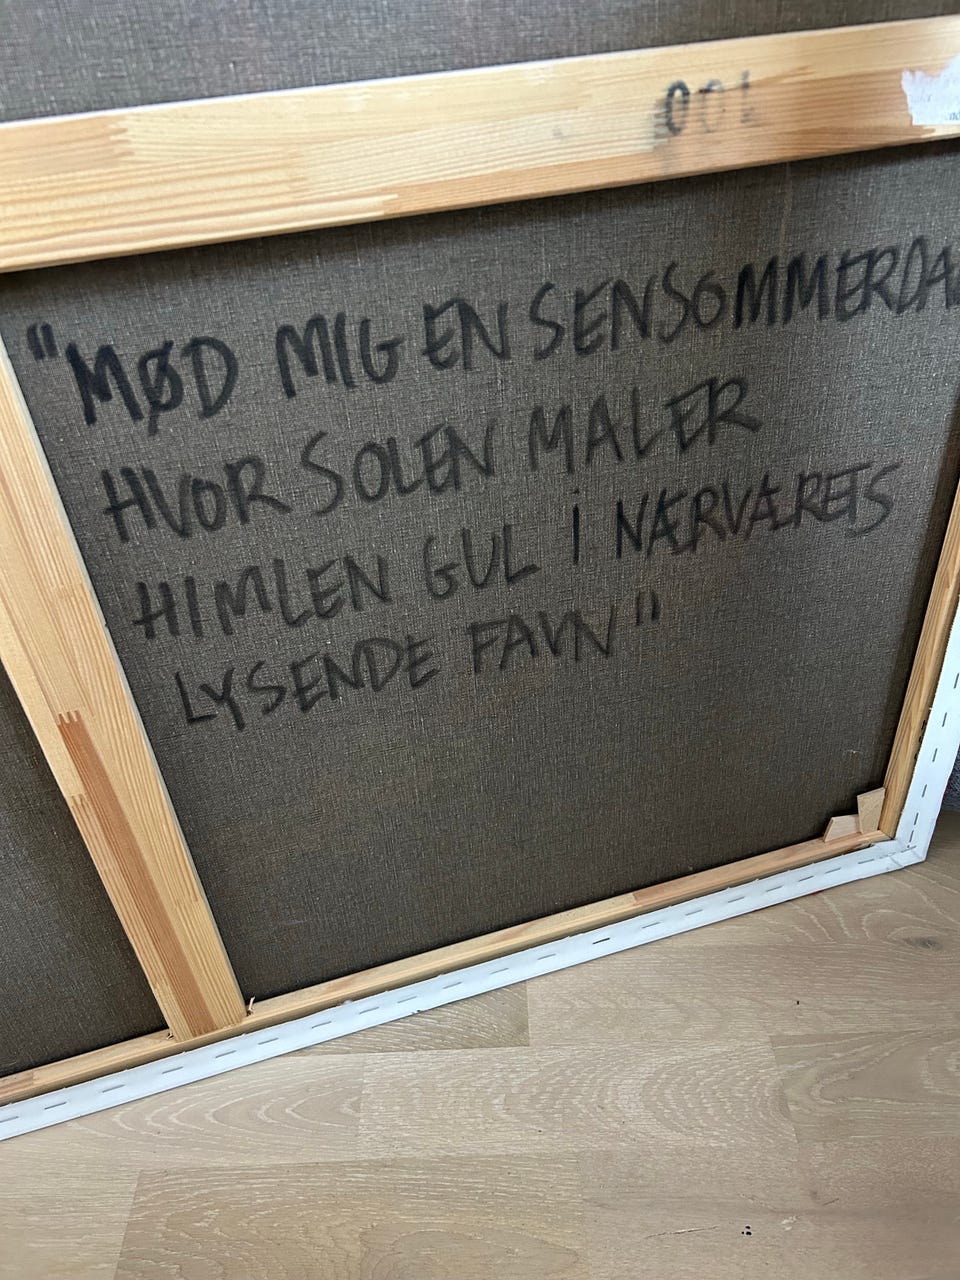 001
"MØD MIG EN SENSOMMERDA
HVOR SOLEN MALER
HIMLEN GUL I NÆRVÆRETS
LYSENDE FAVN"